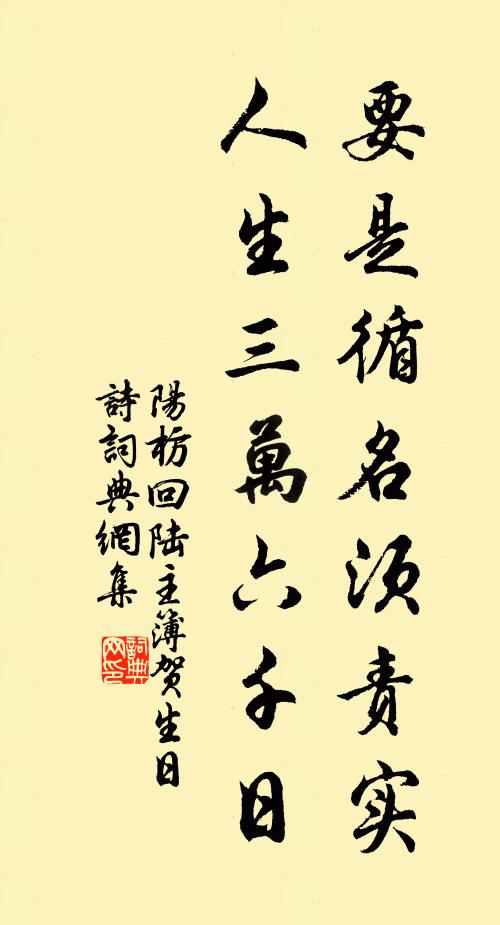 要是循名须责实
人生三萬六千日
陽枋回陆主簿贺生日
詩詞典網集
詞典網印